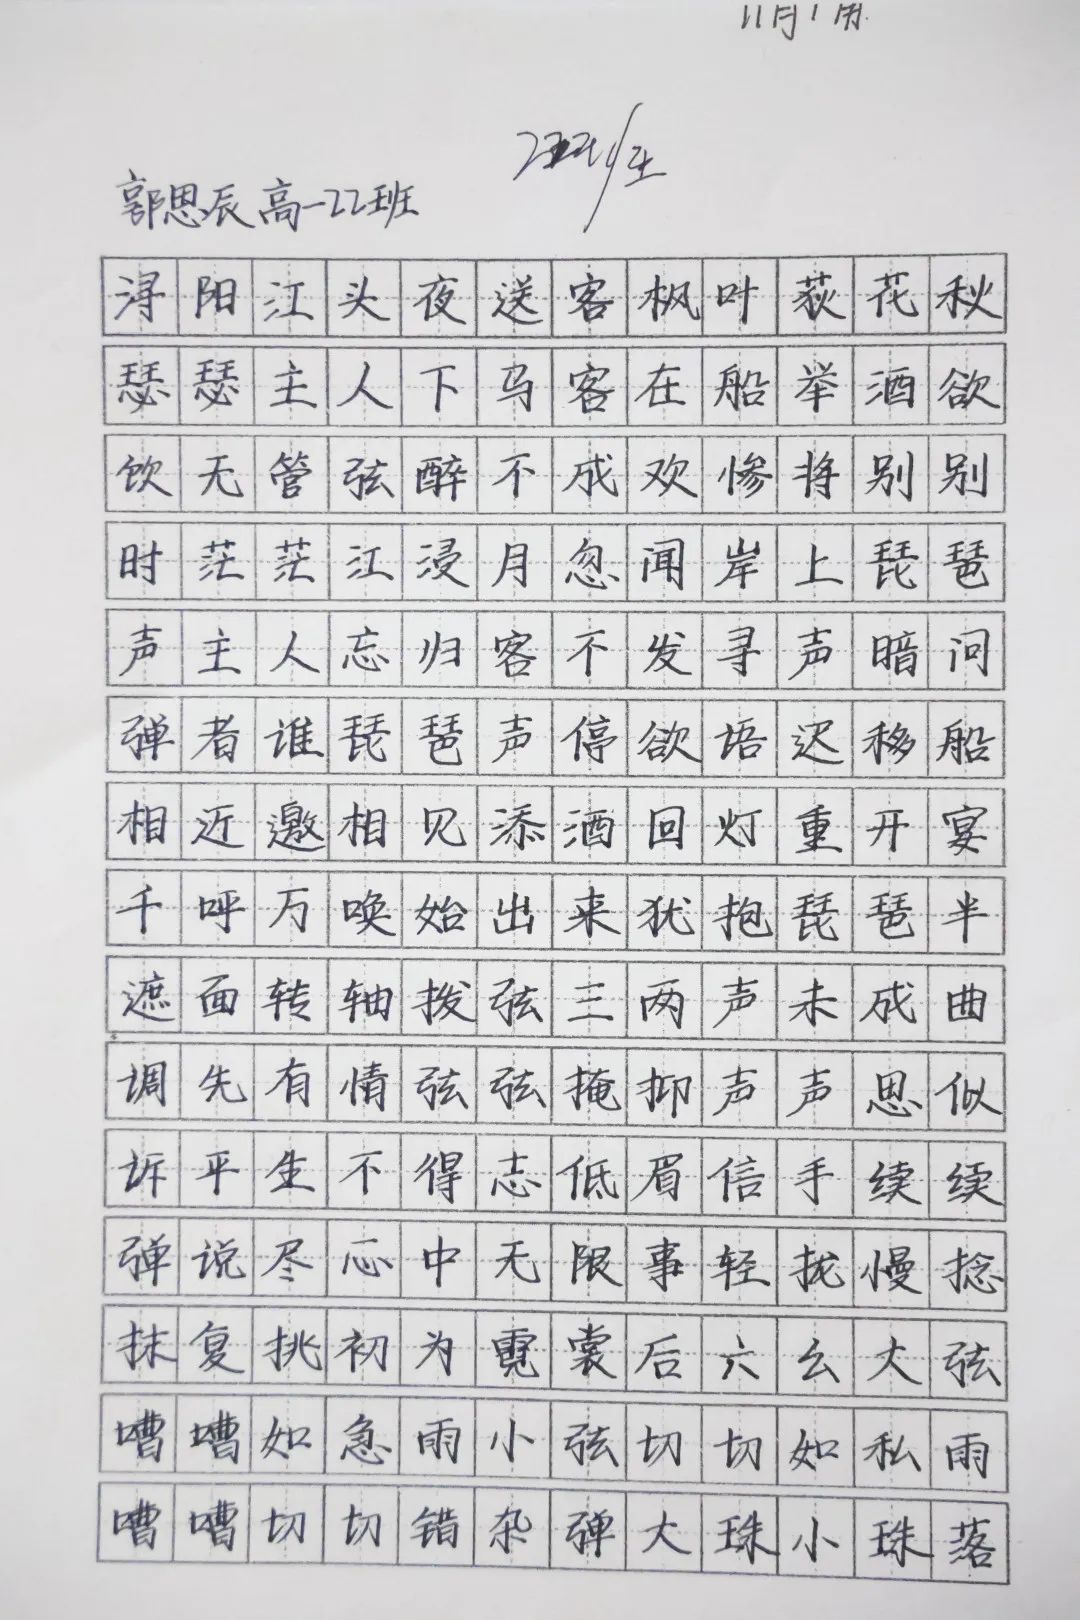 11月1日
郭思辰高一22班
浔阳江头夜送客枫叶荻花秋
瑟瑟主人下马客在船举酒欲
饮无管弦醉不成欢惨将别别
时茫茫江浸月忽闻岸上琵琶
声主人忘归客不发寻声暗问
弹者谁琵琶声停欲语迟移船
相近邀相见添酒回灯重开宴
千呼万唤始出来犹抱琵琶半
遮面转轴拨弦三两声未成曲
调先有情弦弦掩抑声声思似
诉平生不得志低眉信手续续
弹说尽心中无限事轻拢慢捻
抹复挑初为霓裳后六幺大弦
嘈嘈如急雨小弦切切如私雨
嘈嘈切切错杂弹大珠小珠落